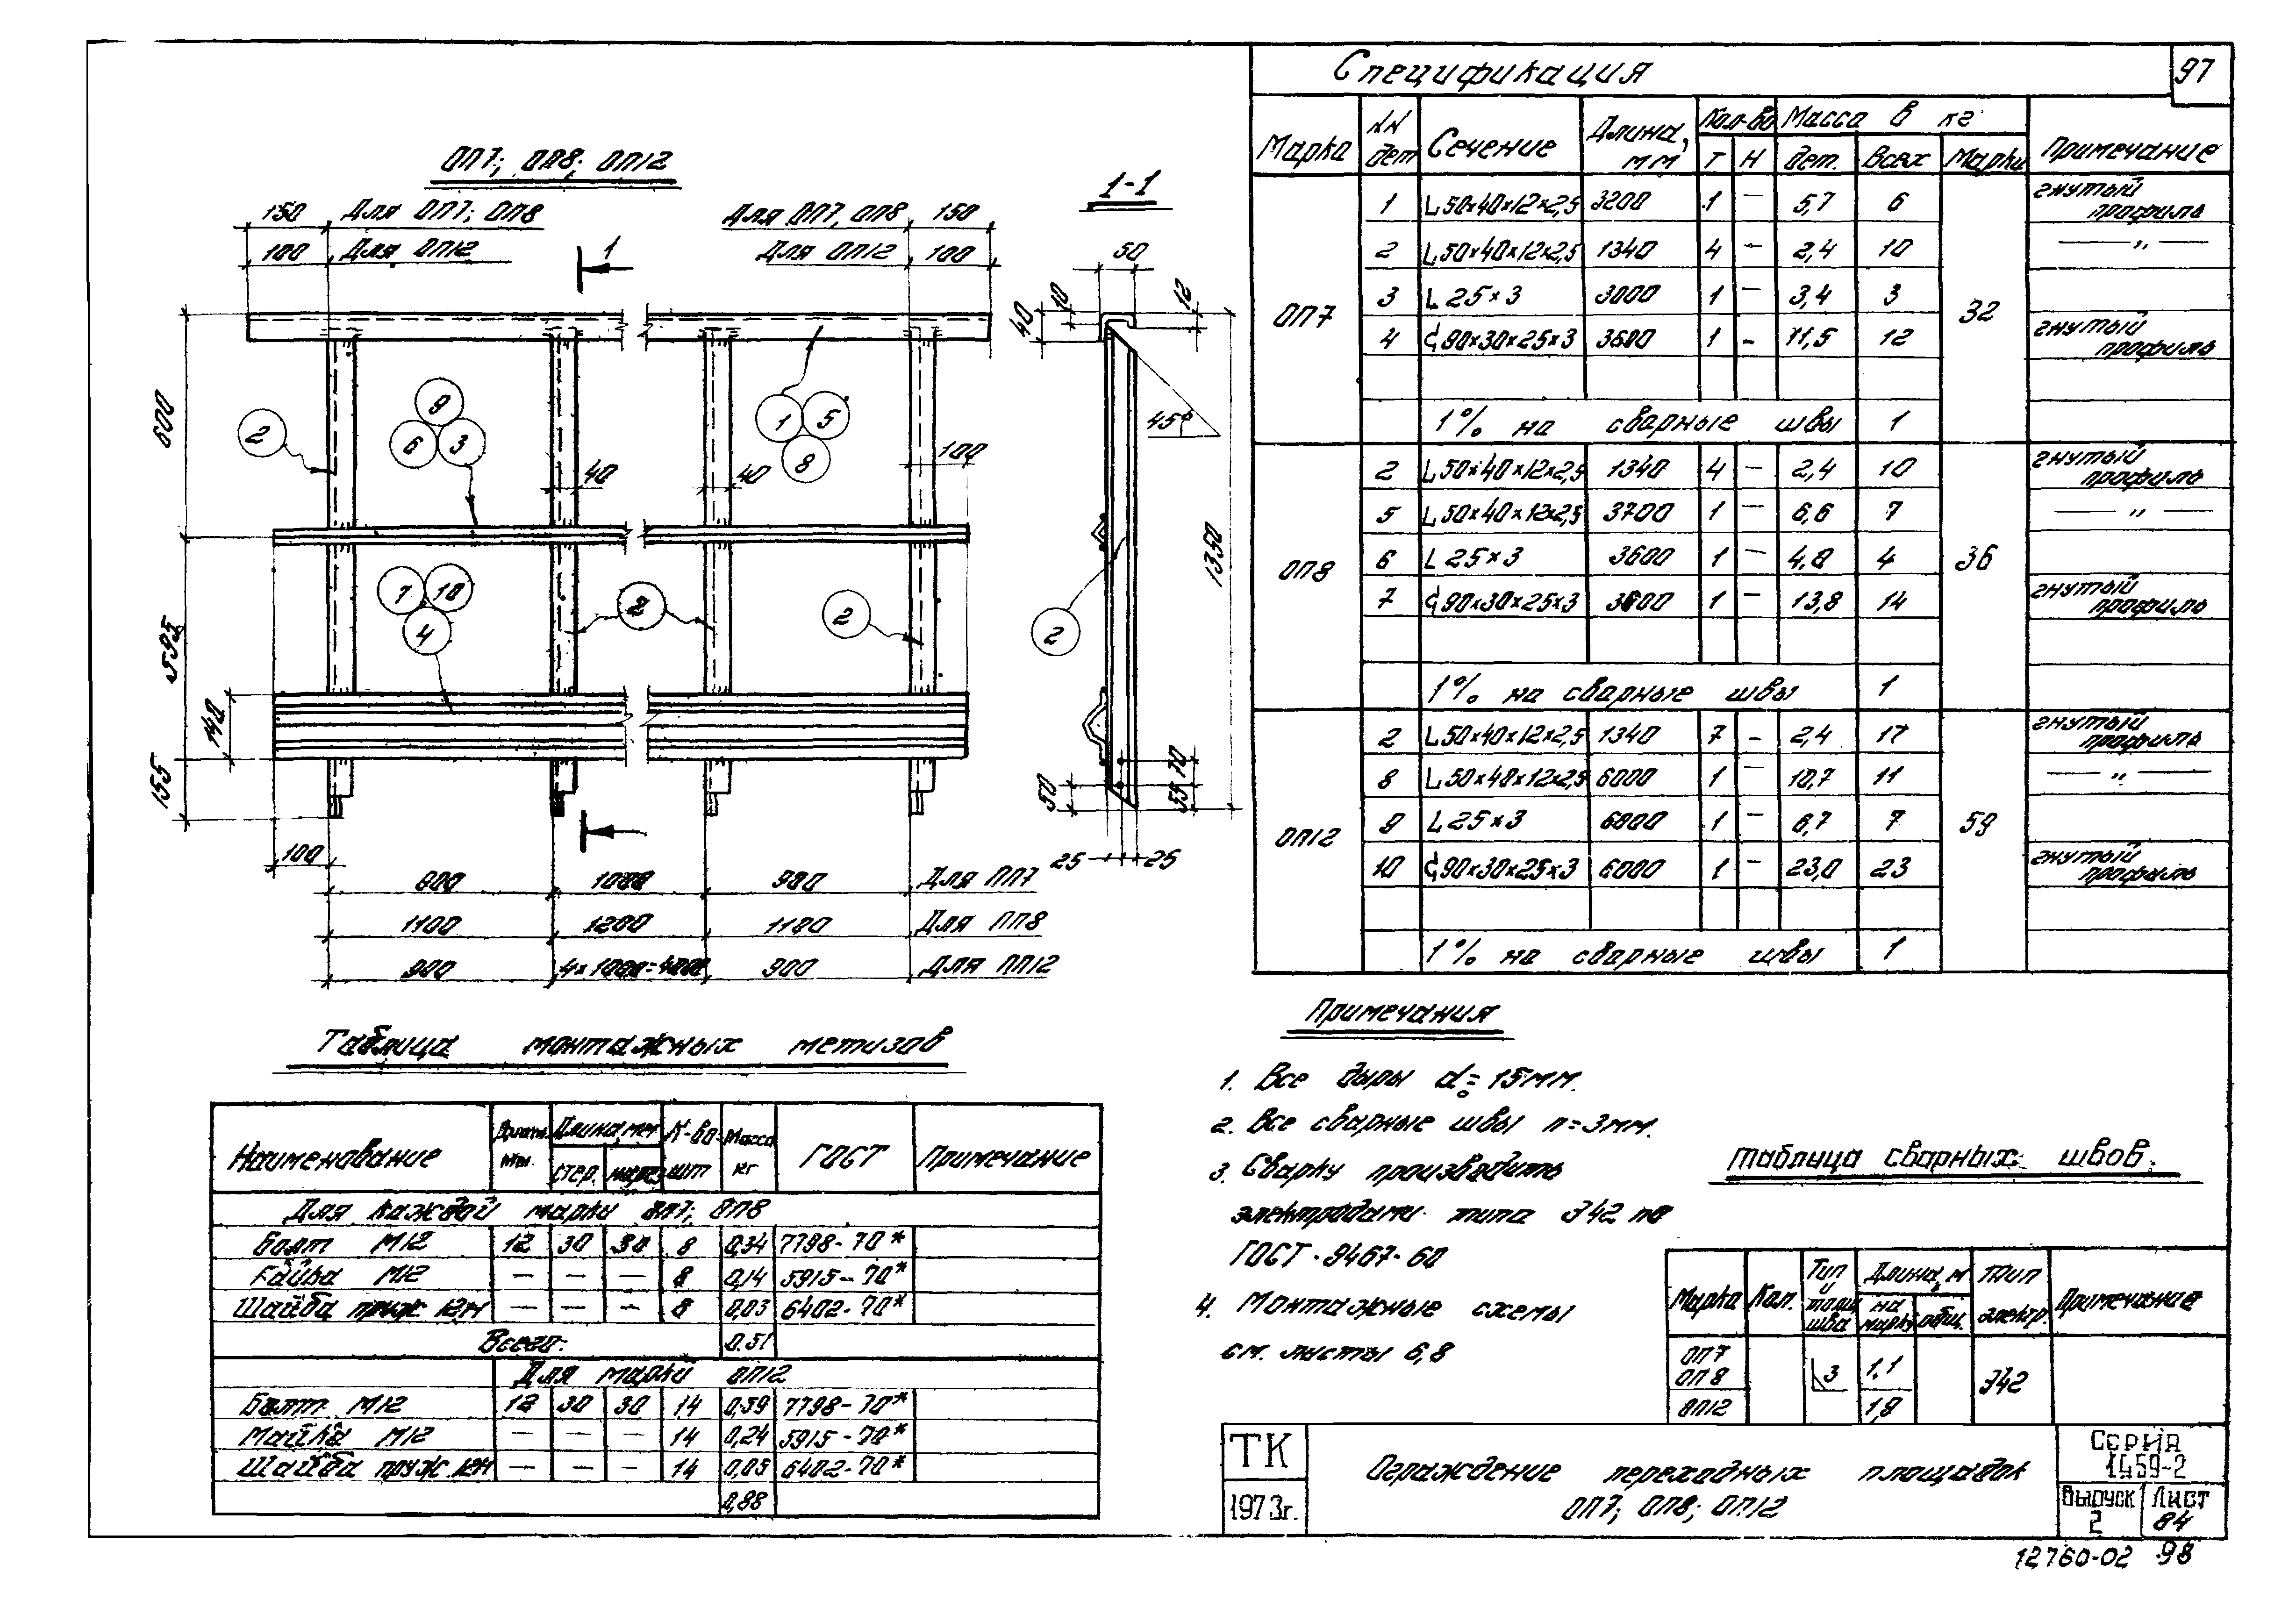 97
Спецификация
Марка NN дет Сечение Длина, мм Кол-во Т Н Масса в кг дет. Всех Марки Примечание
ОП7 32
1 L50×40×12×2,5 3200 1 — 5,7 6 гнутый профиль
2 L50×40×12×2,5 1340 4 - 2,4 10 — „ —
3 L 25×3 3000 1 — 3,4 3
4 90×30×25×3 1 - 11,5 12 гнутый профиль
1% на сварные швы 1
ОП8 36
2 L50×40×12×2,5 1340 4 — 2,4 10 гнутый профиль
5 L50×40×12×2,5 3700 1 — 6,6 7 — „ —
6 L 25×3 3600 1 — 4,0 4
7 90×30×25×3 1 — 13,8 14 гнутый профиль
1% на сварные швы 1
ОП12 59
2 L50×40×12×2,5 1340 7 - 2,4 17 гнутый профиль
8 L50×40×12×2,5 6000 1 — 10,7 11 — „ —
9 L 25×3 6000 1 — 6,7 7
10 90×30×25×3 6000 1 — 23,0 23 гнутый профиль
1% на сварные швы 1
ОП7; ОП8; ОП12
150 Для ОП7; ОП8
Для ОП7, ОП8 150
100 Для ОП12
Для ОП12 100
1
600
595
155
140
2
9
6 3
1 5
8
40
40
100
7 10
4
2
2
100
800 1000 900 Для ПП7
1100 1200 1100 Для ПП8
900 4×1000=4000 900 Для ПП12
1-1
50
10
12
40
45°
1350
2
50
70
55
25
25
Таблица монтажных метизов
Наименование Диам. мм. Длина, мм стер. нарез К-во шт Масса кг ГОСТ Примечание
Для каждой марки ОП7; ОП8
Болт М12 12 30 30 8 0,34 7798-70*
Гайка М12 — — — 8 0,14 5915-70*
Шайба пруж. 12Н — — — 8 0,03 6402-70*
Всего: 0.51
Для марки ОП12
Болт М12 12 30 30 14 0,59 7798-70*
Майка М12 — — — 14 0,24 5915-70*
Шайба пруж. 12Н — — — 14 0,05 6402-70*
0,88
Примечания
1. Все дыры d₀=15мм.
2. Все сварные швы n=3мм.
3. Сварку производить
электродами типа Э42 по
ГОСТ 9467-60
4. Монтажные схемы
см. листы 6,8
Таблица сварных швов.
Марка Кол. Тип и толщ. шва Длина, м на марку общ. Тип электр. Примечание
ОП7
ОП8 3 1,1 Э42
ОП12 1,8
ТК
1973г.
Ограждение переходных площадок
ОП7; ОП8; ОП12
Серия
1.459-2
Выпуск 2
Лист 84
12760-02 98